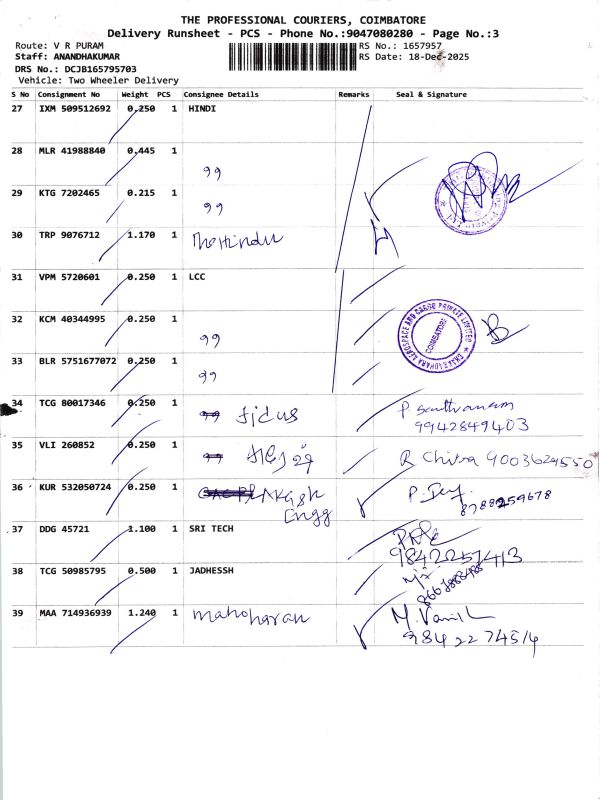 THE PROFESSIONAL COURIERS, COIMBATORE
Delivery Runsheet - PCS - Phone No.:9047080280 - Page No.:3
Route: V R PURAM RS No.: 1657957
Staff: ANANDHAKUMAR RS Date: 18-Dec-2025
DRS No.: DCJB165795703
Vehicle: Two Wheeler Delivery
S No Consignment No Weight PCS Consignee Details Remarks Seal & Signature
27 IXM 509512692 0.250 1 HINDI
28 MLR 41988840 0.445 1 99
29 KTG 7202465 0.215 1 99
30 TRP 9076712 1.170 1
31 VPM 5720601 0.250 1 LCC
32 KCM 40344995 0.250 1 99
COIMBATORE
33 BLR 5751677072 0.250 1 99
34 TCG 80017346 0.250 1
9942849403
35 VLI 260852 0.250 1 R Chitra 9003624550
36 KUR 532050724 0.250 1 Akash
Engg
8788259678
37 DDG 45721 1.100 1 SRI TECH
38 TCG 50985795 0.500 1 JADHESSH
39 MAA 714936939 1.240 1 manoharan
9842274514